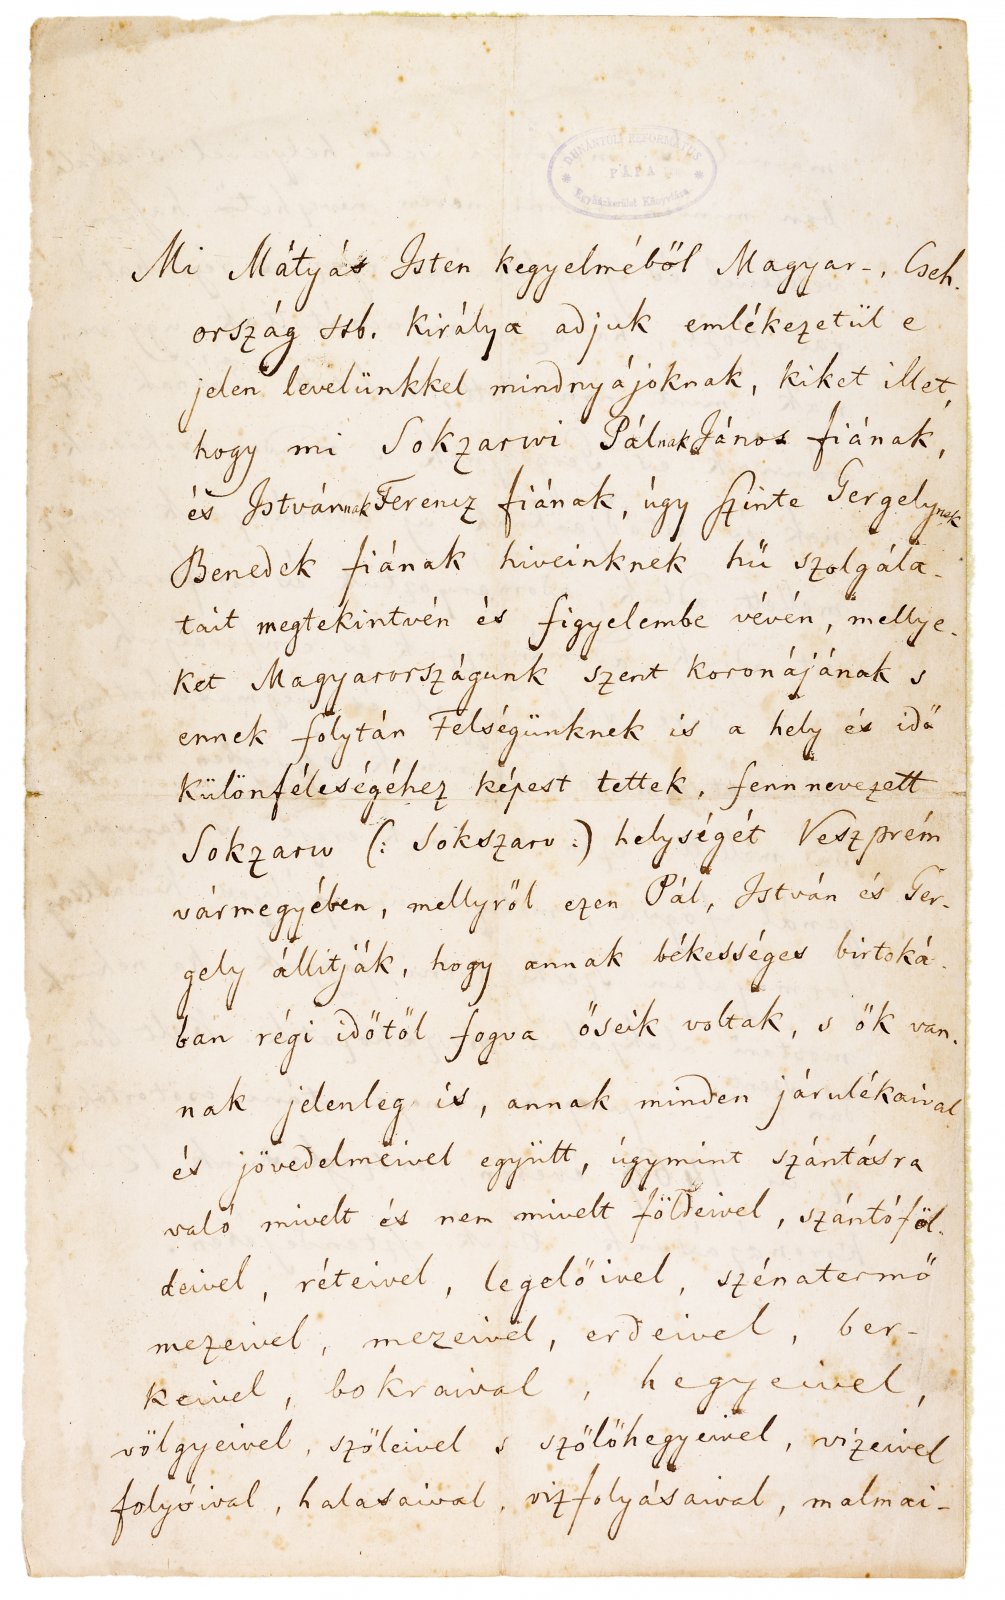 DUNÁNTÚLI REFORMÁTUS
PÁPA
Egyházkerület Könyvtára
Mi Mátyás Isten kegyelméből Magyar-, Cseh-
ország ssb. királya adjuk emlékezetül e
jelen levelünkkel mindnyájoknak, kiket illet,
hogy mi Sokzarwi Pálnak János fiának,
és Istvánnak Ferencz fiának, úgy szinte Gergelynek
Benedek fiának hiveinknek hű szolgála-
tait megtekintvén és figyelembe vévén, mellye-
ket Magyarországunk szent koronájának s
ennek folytán Felségünknek is a hely és idő
különféleségéhez képest tettek, fennnevezett
Sokzarw (: Sokszarv :) helységét Veszprém
vármegyében, mellyről ezen Pál, István és Ger-
gely állitják, hogy annak békességes birtoká-
ban régi időtől fogva őseik voltak, s ők van-
nak jelenleg is, annak minden járulékaival
és jövedelmeivel együtt, úgymint szántásra
való mivelt és nem mivelt földeivel, szántóföl-
deivel, réteivel, legelőivel, szénatermő
mezeivel, mezeivel, erdeivel, ber-
keivel, bokraival, hegyeivel,
völgyeivel, szőleivel s szőlőhegyeivel, vizeivel
folyóival, halasaival, vizfolyásaival, malmai-